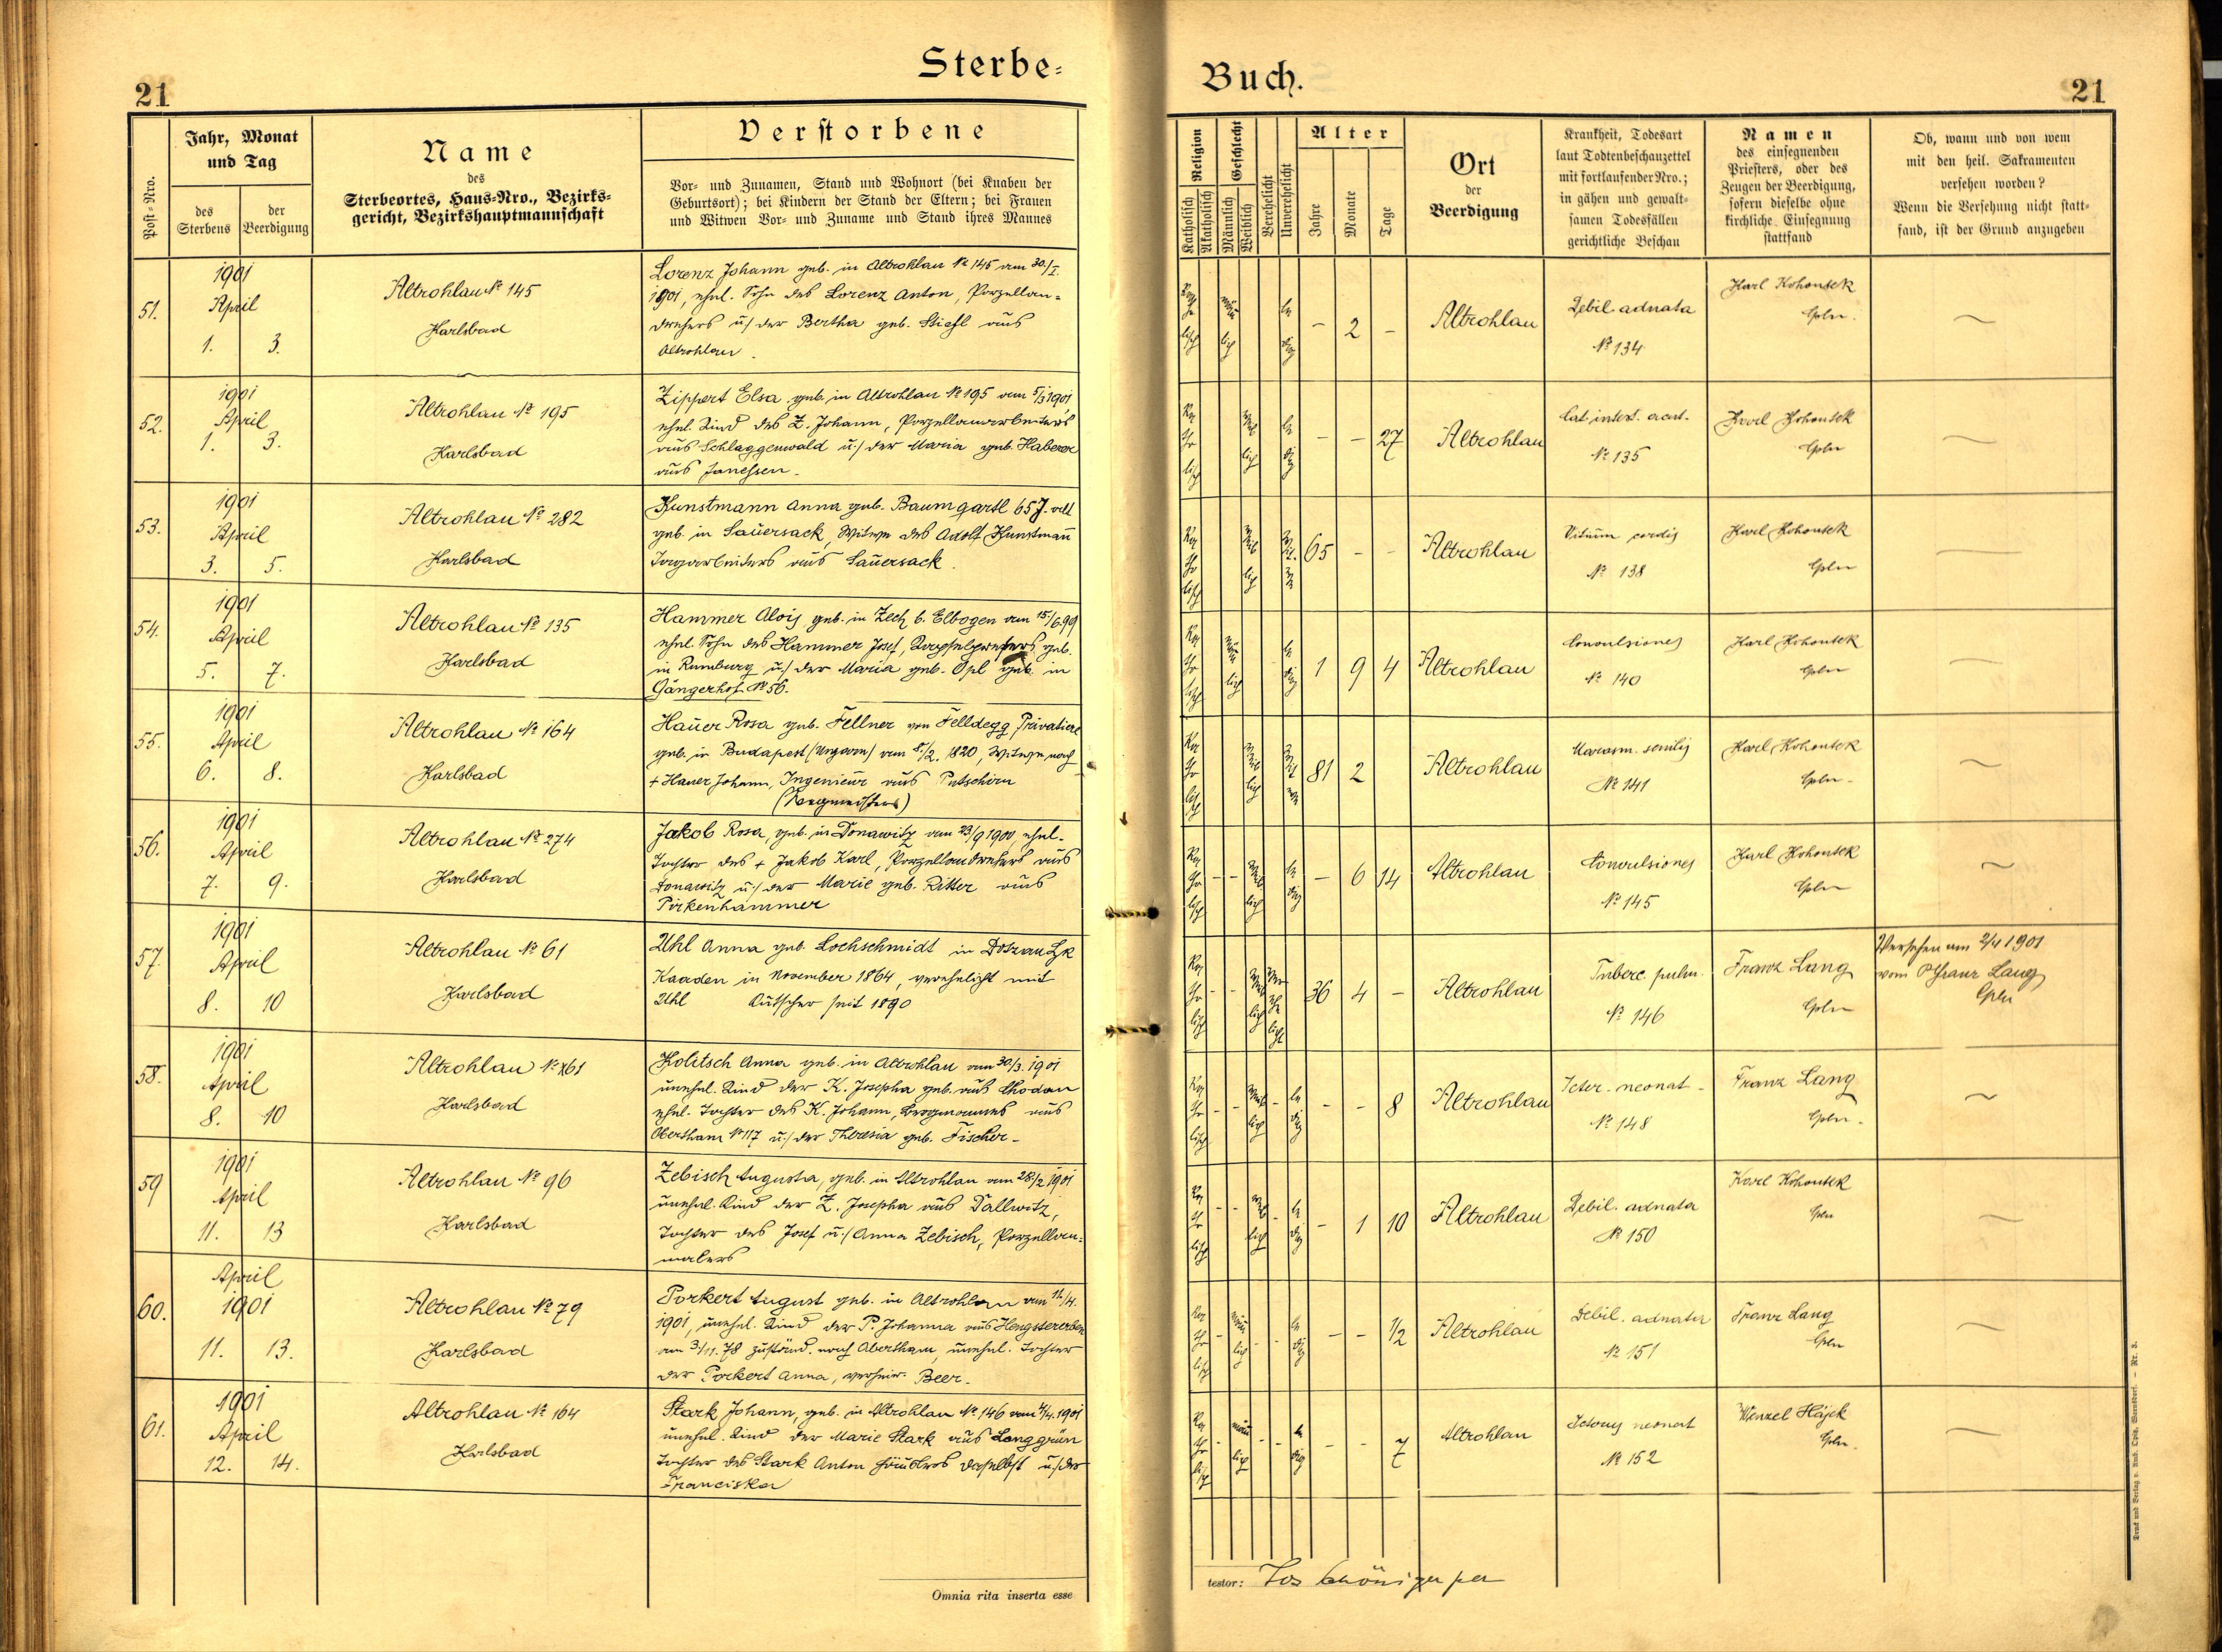 Sterbe-
Buch.
21
21
Post-Nro.
Jahr, Monat
und Tag
des
Sterbens
der
Beerdigung
Name
des
Sterbeortes, Haus-Nro., Bezirks-
gericht, Bezirkshauptmannschaft
Verstorbene
Vor- und Zunamen, Stand und Wohnort (bei Knaben der
Geburtsort); bei Kindern der Stand der Eltern; bei Frauen
und Witwen Vor- und Zuname und Stand ihres Mannes
Religion
Katholisch
Akatholisch
Geschlecht
Männlich
Weiblich
Verehelicht
Unverehelicht
Alter
Jahre
Monate
Tage
Ort
der
Beerdigung
Krankheit, Todesart
laut Todtenbeschauzettel
mit fortlaufender Nro.;
in gähen und gewalt-
samen Todesfällen
gerichtliche Beschau
Namen
des einsegnenden
Priesters, oder des
Zeugen der Beerdigung,
sofern dieselbe ohne
kirchliche Einsegnung
stattfand
Ob, wann und von wem
mit den heil. Sakramenten
versehen worden?
Wenn die Versehung nicht statt-
fand, ist der Grund anzugeben
51.
1901
April
1. 3.
Altrohlau № 145
Karlsbad
Lorenz Johann geb. in Altrohlau № 145 am 30./I.
1901, ehel. Sohn des Lorenz Anton, Porzellan-
drehers u/ der Bertha geb. Stiefl aus
Altrohlau.
– 2 –
Altrohlau
Debil adnata
№ 134
Karl Kohoutek
Cpln.
52.
1901
April
1. 3.
Altrohlau № 195
Karlsbad
Zippert Elsa geb. in Altrohlau № 195 am 5/3 1901
ehel. Kind des Z. Johann, Porzellanarbeiters
aus Schlaggenwald u/ der Maria geb. Haberer
aus Janessen.
– – 27
Altrohlau
Cat. intest. acut.
№ 135
Karl Kohoutek
Cpln
53.
1901
April
3. 5.
Altrohlau № 282
Karlsbad
Kunstmann Anna geb. Baumgartl 65 J. alt
geb. in Sauersack, Witwe des Adolf Kunstmann
Tagarbeiters aus Sauersack.
65 – –
Altrohlau
Vitium cordis
№ 138
Karl Kohoutek
Cpln
54.
1901
April
5. 7.
Altrohlau № 135
Karlsbad
Hammer Alois geb. in Zech b. Elbogen am 15./6.99
ehel. Sohn des Hammer Josef, geb.
in Rumburg u/ der Maria geb. Opl geb. in
Gängerhof № 56.
1 9 4
Altrohlau
Convulsiones
№ 140
Karl Kohoutek
Cpln
55.
1901
April
6. 8.
Altrohlau № 164
Karlsbad
Hauer Rosa geb. Fellner von Felldegg, Privatiere
geb. in Budapest (Ungarn) am 8./2. 1820, Witwe nach
+ Hauer Johann, Ingenieur aus Putschirn
(Bergmeisters)
81 2
Altrohlau
Marasm. senilis
№ 141
Karl Kohoutek
Cpln.
56.
1901
April
7. 9.
Altrohlau № 274
Karlsbad
Jakob Rosa, geb. in Donawitz am 23/9 1900, ehel.
Tochter des + Jakob Karl, Porzellandrehers aus
Donawitz u/ der Marie geb. Ritter aus
Pirkenhammer
– 6 14
Altrohlau
Convulsiones
№ 145
Karl Kohoutek
Cpln
57.
1901
April
8. 10
Altrohlau № 61
Karlsbad
Uhl Anna geb. Lochschmidt in
Kaaden in November 1864, verehelicht mit
Uhl Kutscher seit 1890
36 4 –
Altrohlau
Tuberc. pulm.
№ 146
Franz Lang
Cpln
Versehen am 2/4 1901
vom P. Franz Lang
Cpln
58.
1901
April
8. 10
Altrohlau № 161
Karlsbad
Kolitsch Anna geb. in Altrohlau am 30/3. 1901
unehel. Kind der K. Josepha geb. aus Chodau
ehel. Tochter des K. Johann, Bergmannes aus
№ 117 u/ der Theresia geb. Fischer.
– – 8
Altrohlau
Icter. neonat.
№ 148
Franz Lang
Cpln.
59
1901
April
11. 13
Altrohlau № 96
Karlsbad
Zebisch Augusta, geb. in Altrohlau am 28./2 1901
unehel. Kind der Z. Josepha aus Dallwitz,
Tochter des Josef u/ Anna Zebisch, Porzellan-
malers
– 1 10
Altrohlau
Debil. adnata
№ 150
Karl Kohoutek
Cpln
60.
April
1901
11. 13.
Altrohlau № 79
Karlsbad
Porkert August geb. in Altrohlau am 11./4.
1901, unehel. Kind der P. Johanna aus Hengstererben
am 3/11. 78 zuständ. nach Abertham, unehel. Tochter
der Porkert Anna, verheir. Beer.
– – 1/2
Altrohlau
Debil. adnata
№ 151
Franz Lang
Cpln
61.
1901
April
12. 14.
Altrohlau № 164
Karlsbad
Stark Johann, geb. in Altrohlau № 146 am 4/4. 1901
unehel. Kind der Marie Stark aus Langgrün
Tochter des Stark Anton Häuslers daselbst u/ der
Franciska
– – 7
Altrohlau
Icterus neonat
№ 152
Wenzel Hájek
Cpln.
Omnia rita inserta esse
testor: